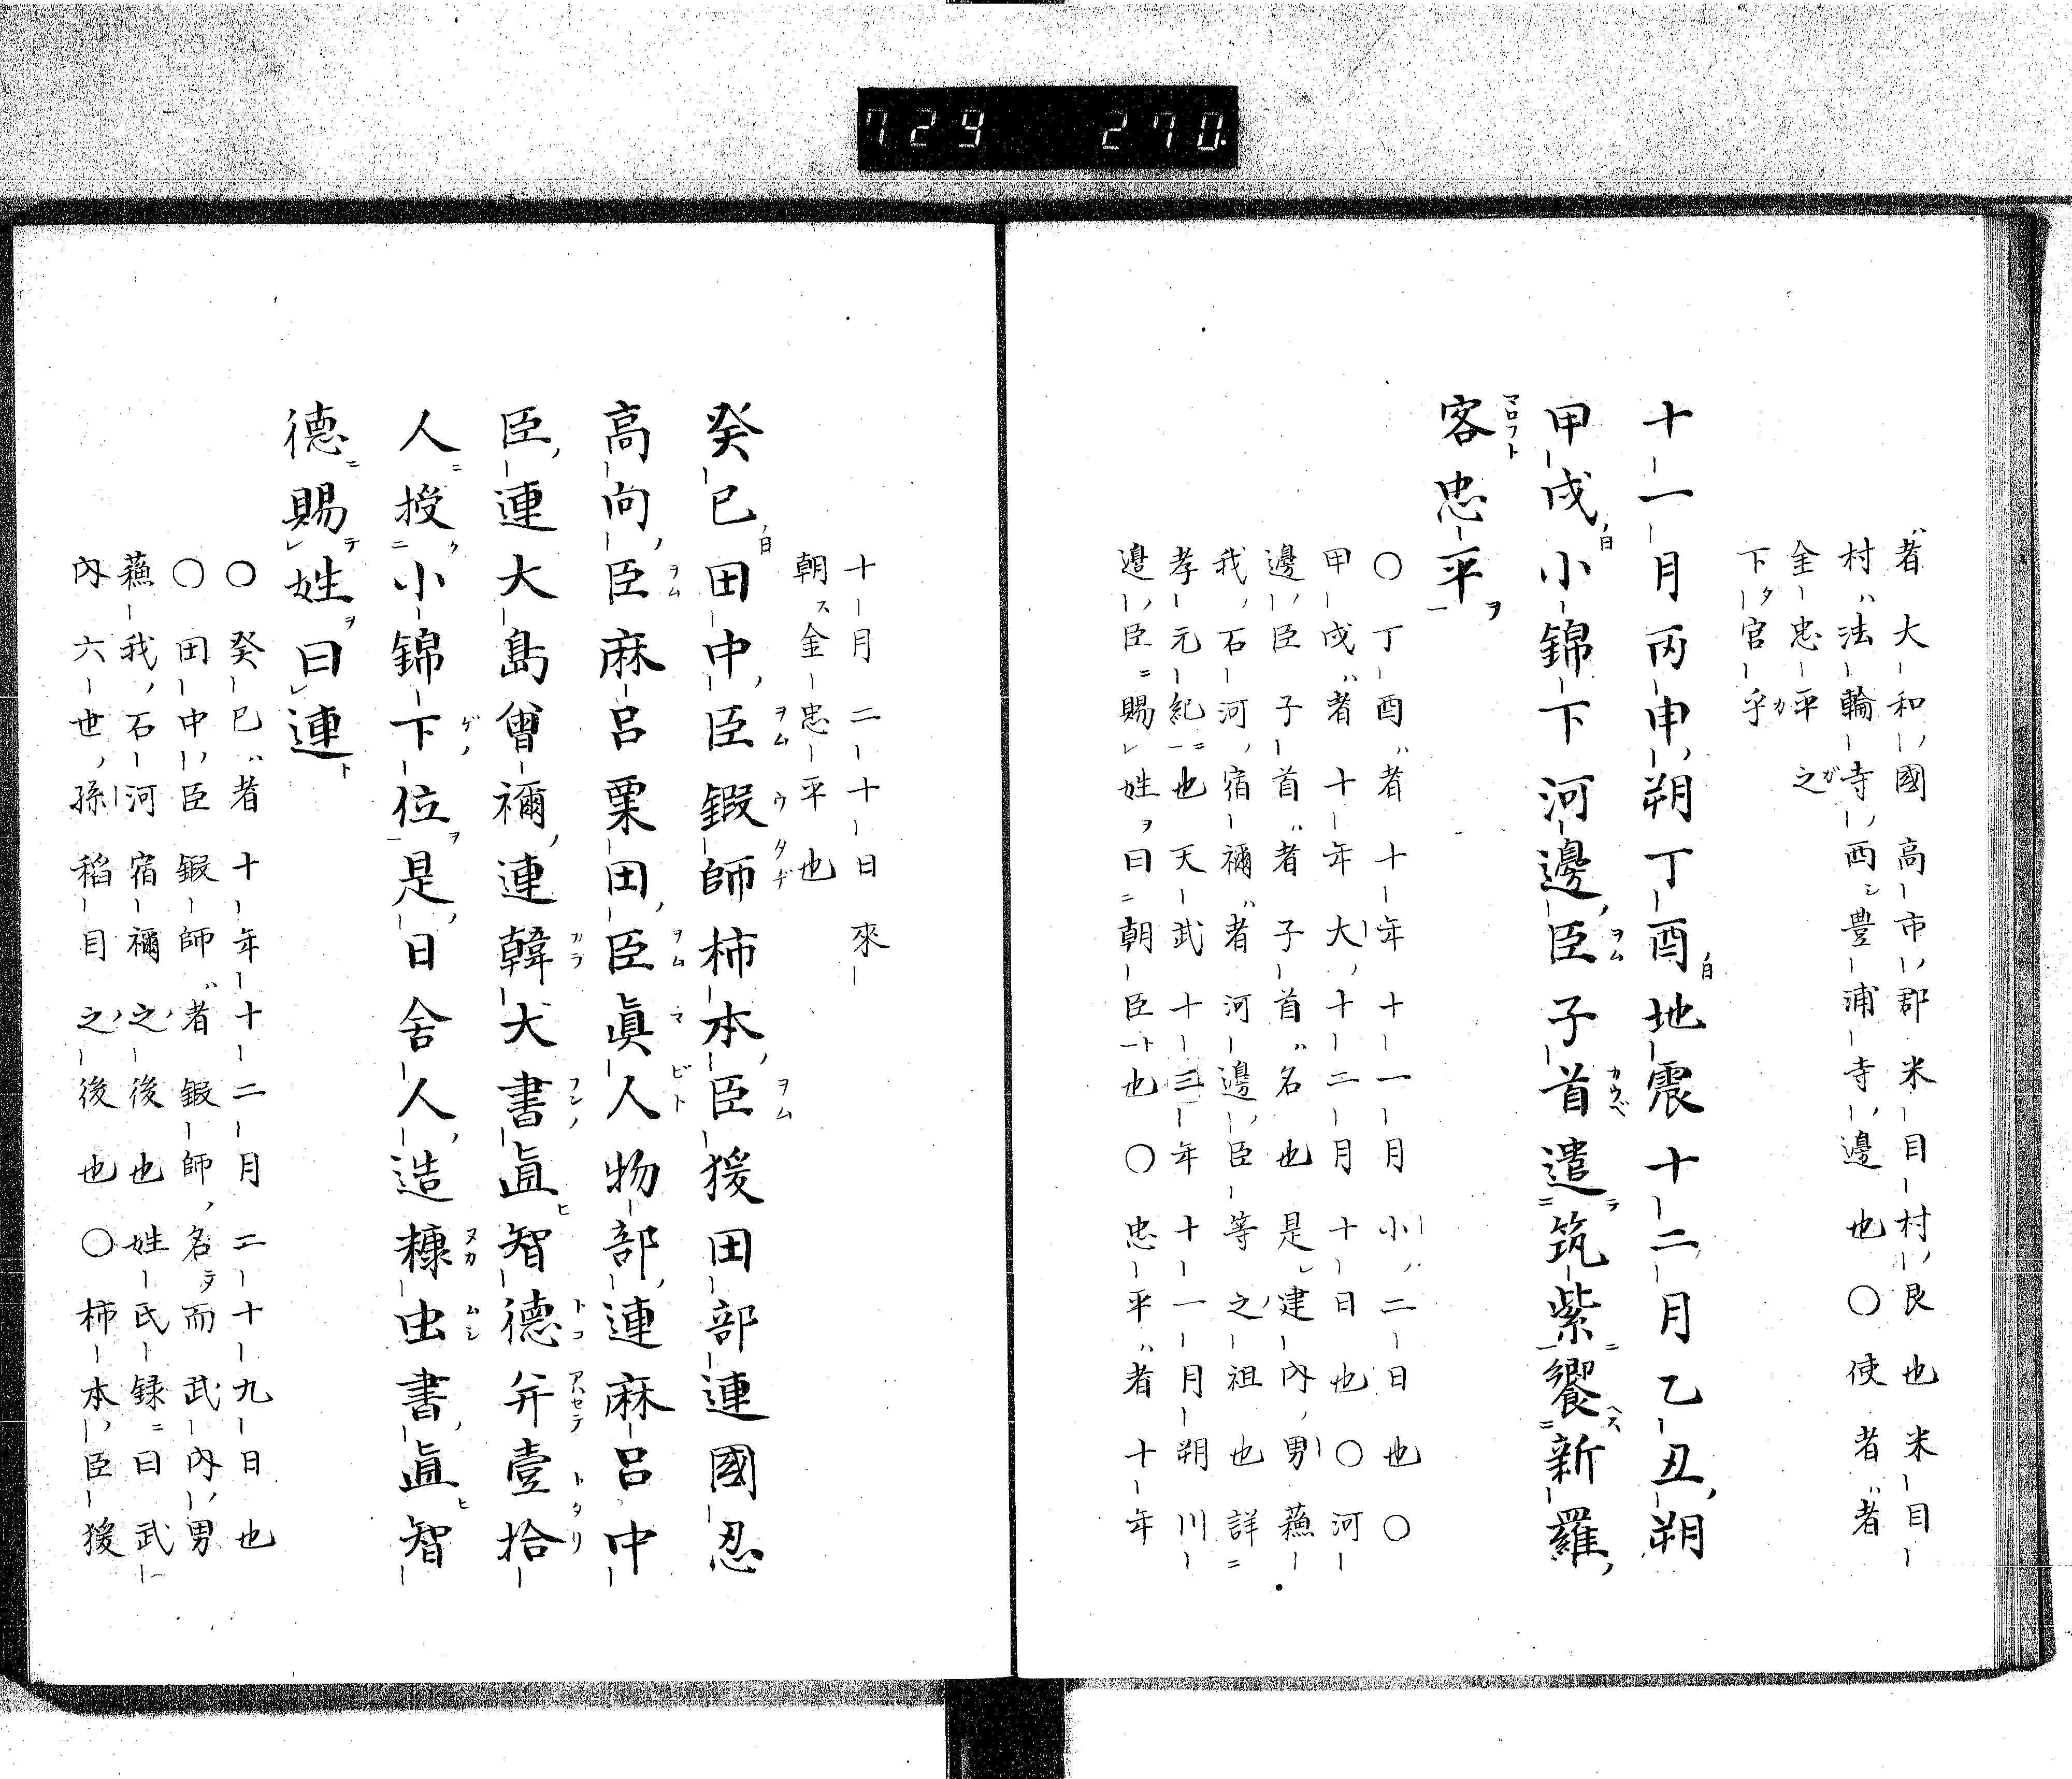 729 270.
者大和國高市郡米目村艮也米目
村法輪寺西豊浦寺邊也〇使者者
金忠平之
下官乎
十一月丙申朔丁酉地震十二月乙丑朔
甲戌小錦下河邊臣子首遣筑紫饗新羅
客忠平
〇丁酉者十年十一月小二日也〇
甲戌者十年大十二月十日也〇河
邊臣子首者子首名也是建內男蘓
我石河宿禰者河邊臣等之祖也詳
孝元紀也天武十三年十一月朔川
邊臣賜姓曰朝臣也〇忠平者十年
十月二十日來
朝金忠平也
癸巳田中臣鍜師柿本臣猨田部連國忍
高向臣麻呂粟田臣眞人物部連麻呂中
臣連大島曾禰連韓犬書直智德并壹拾
人授小錦下位是日舍人造糠虫書直智
德賜姓曰連
〇癸巳者十年十二月二十九日也
〇田中臣鍜師者鍜師名而武內男
蘓我石河宿禰之後也姓氏録曰武
內六世孫稻目之後也〇柿本臣猨